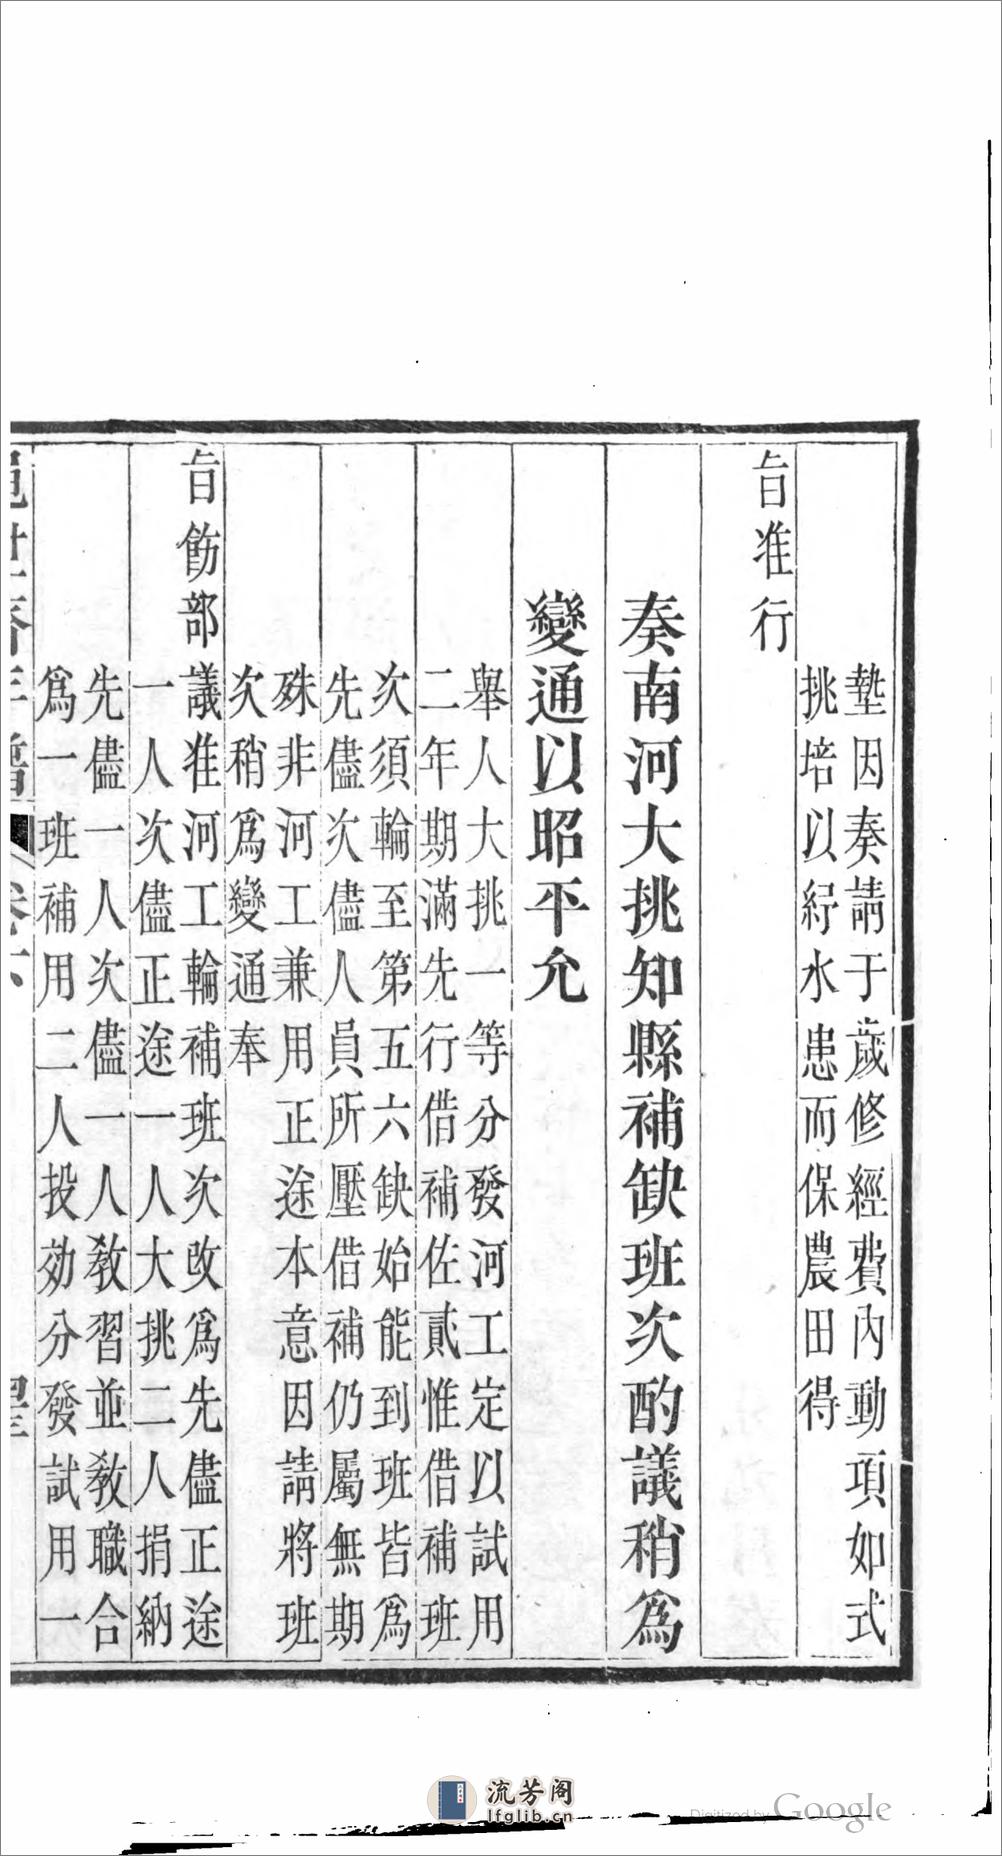 墊因奏請于歲修經費內動項如式
挑培以紓水患而保農田得
旨准行
奏南河大挑知縣補缺班次酌議稍爲
變通以昭平允
舉人大挑一等分發河工定以試用
二年期滿先行借補佐貳惟借補班
次須輪至第五六缺始能到班皆爲
先儘次儘人員所壓借補仍屬無期
殊非河工兼用正途本意因請將班
次稍爲變通奉
旨飭部議准河工輪補班次改爲先儘正途
一人次儘正途一人大挑二人捐納
先儘一人次儘一人教習並教職合
爲一班補用二人投効分發試用一
年譜
卷下
流芳阁
lfglib.cn
Digitized by Google